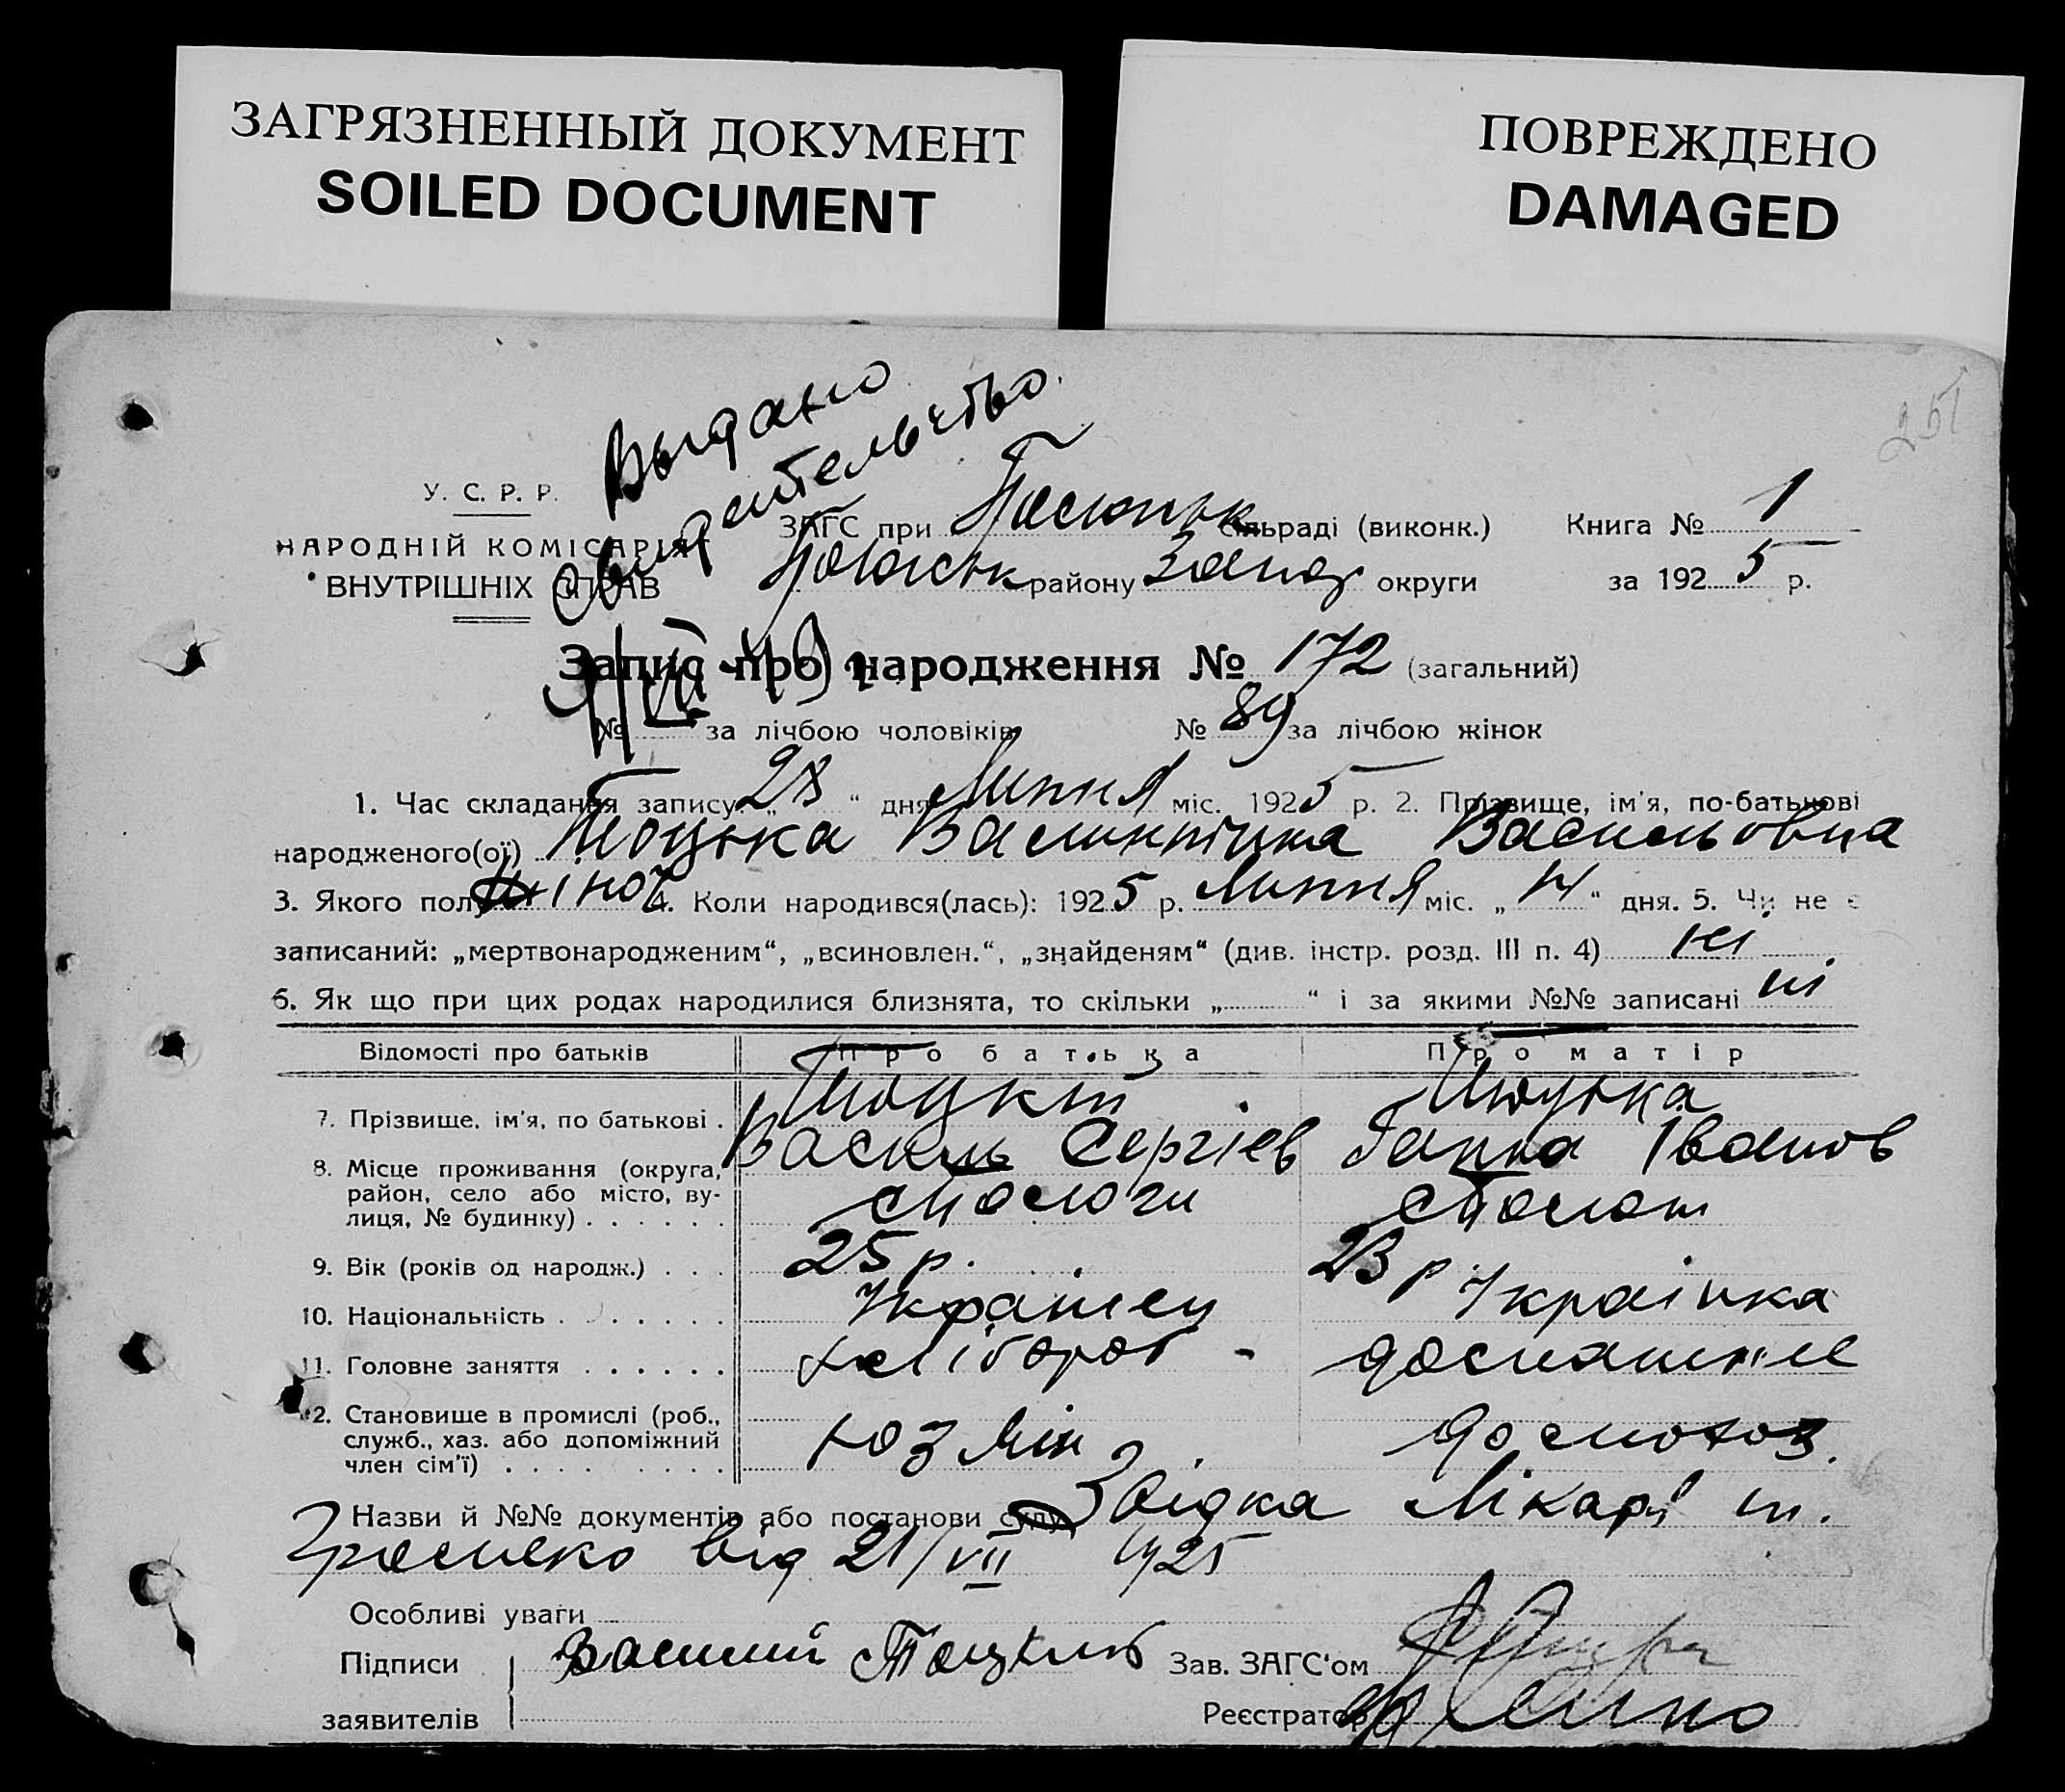 ЗАГРЯЗНЕННЫЙ ДОКУМЕНТ
SOILED DOCUMENT
ПОВРЕЖДЕНО
DAMAGED
251
Выдано
Свидетельство.
У. С. Р. Р.
НАРОДНІЙ КОМІСАРІЯТ
ВНУТРІШНІХ СПРАВ
ЗАГС при сільраді (виконк.) Книга № 1
району Запор округи за 1925 р.
Запис про народження № 172 (загальний)
№ — за лічбою чоловіків № 89 за лічбою жінок
1. Час складання запису: „28“ дня Липня міс. 1925 р. 2. Прізвище, ім'я, по-батькові
народженого(ої) Тоцька Валинтина Васильовна
3. Якого полу жіноч 4. Коли народився(лась): 1925 р. Липня міс. „14“ дня. 5. Чи не є
записаний: „мертвонародженим“, „всиновлен.“, „знайденям“ (див. інстр. розд. III п. 4) ні
6. Як що при цих родах народилися близнята, то скільки „ “ і за якими №№ записані ні
Відомості про батьків Про батька Про матір
7. Прізвище, ім'я, по батькові . Тоцький Василь Сергієв Тоцька Ганна Іванов
8. Місце проживання (округа, район, село або місто, вулиця, № будинку) . . . . . .
9. Вік (років од народж.) . . . 25 р. 23 р
10. Національність . . . . . . . Українец Українка
11. Головне заняття . . . . . . хлібороб - домашнє
12. Становище в промислі (роб., служб., хаз. або допоміжний член сім'ї) . . . . . . . . хозяїн
Назви й №№ документів або постанови суду Звідка Лікаря
від 21/VII 1925
Особливі уваги
Підписи Василий Тоцкий Зав. ЗАГС'ом
заявителів Реєстратор